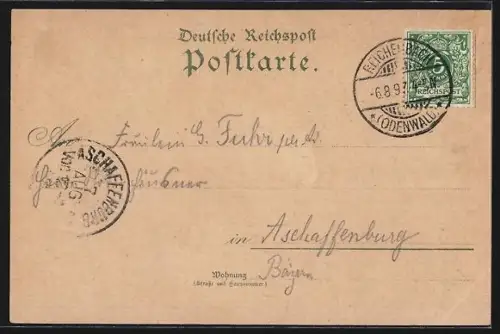 Deutsche Reichspost
Postkarte.
REICHENBACH
-6.8.97
* (ODENWALD) *
5
REICHSPOST
An Fräulein G. Fuhr
ASCHAFFENBURG
7
AUG
in Aschaffenburg
Bayern
Wohnung
(Straße und Hausnummer)